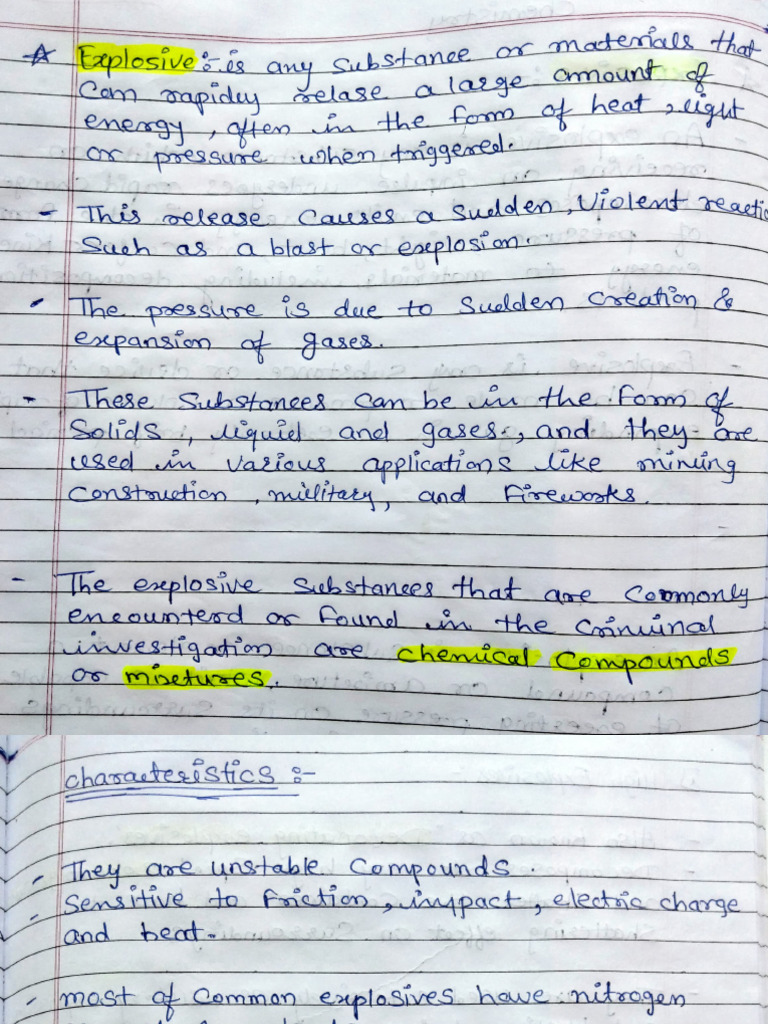 ☆ Explosive :- is any substance or materials that
Can rapidly relase a large amount of
energy, often in the form of heat, light
or pressure when triggered.
- This release causes a sudden, violent reactio
Such as a blast or explosion.
- The pressure is due to sudden creation &
expansion of gases.
- These substances can be in the form of
Solids, liquid and gases, and they are
used in various applications like mining
construction, military, and fireworks.
- The explosive substances that are commonly
encounterd or found in the criminal
investigation are chemical compounds
or mixtures.
characteristics :-
- They are unstable compounds.
- Sensitive to friction, impact, electric charge
and heat.
- most of common explosives have nitrogen